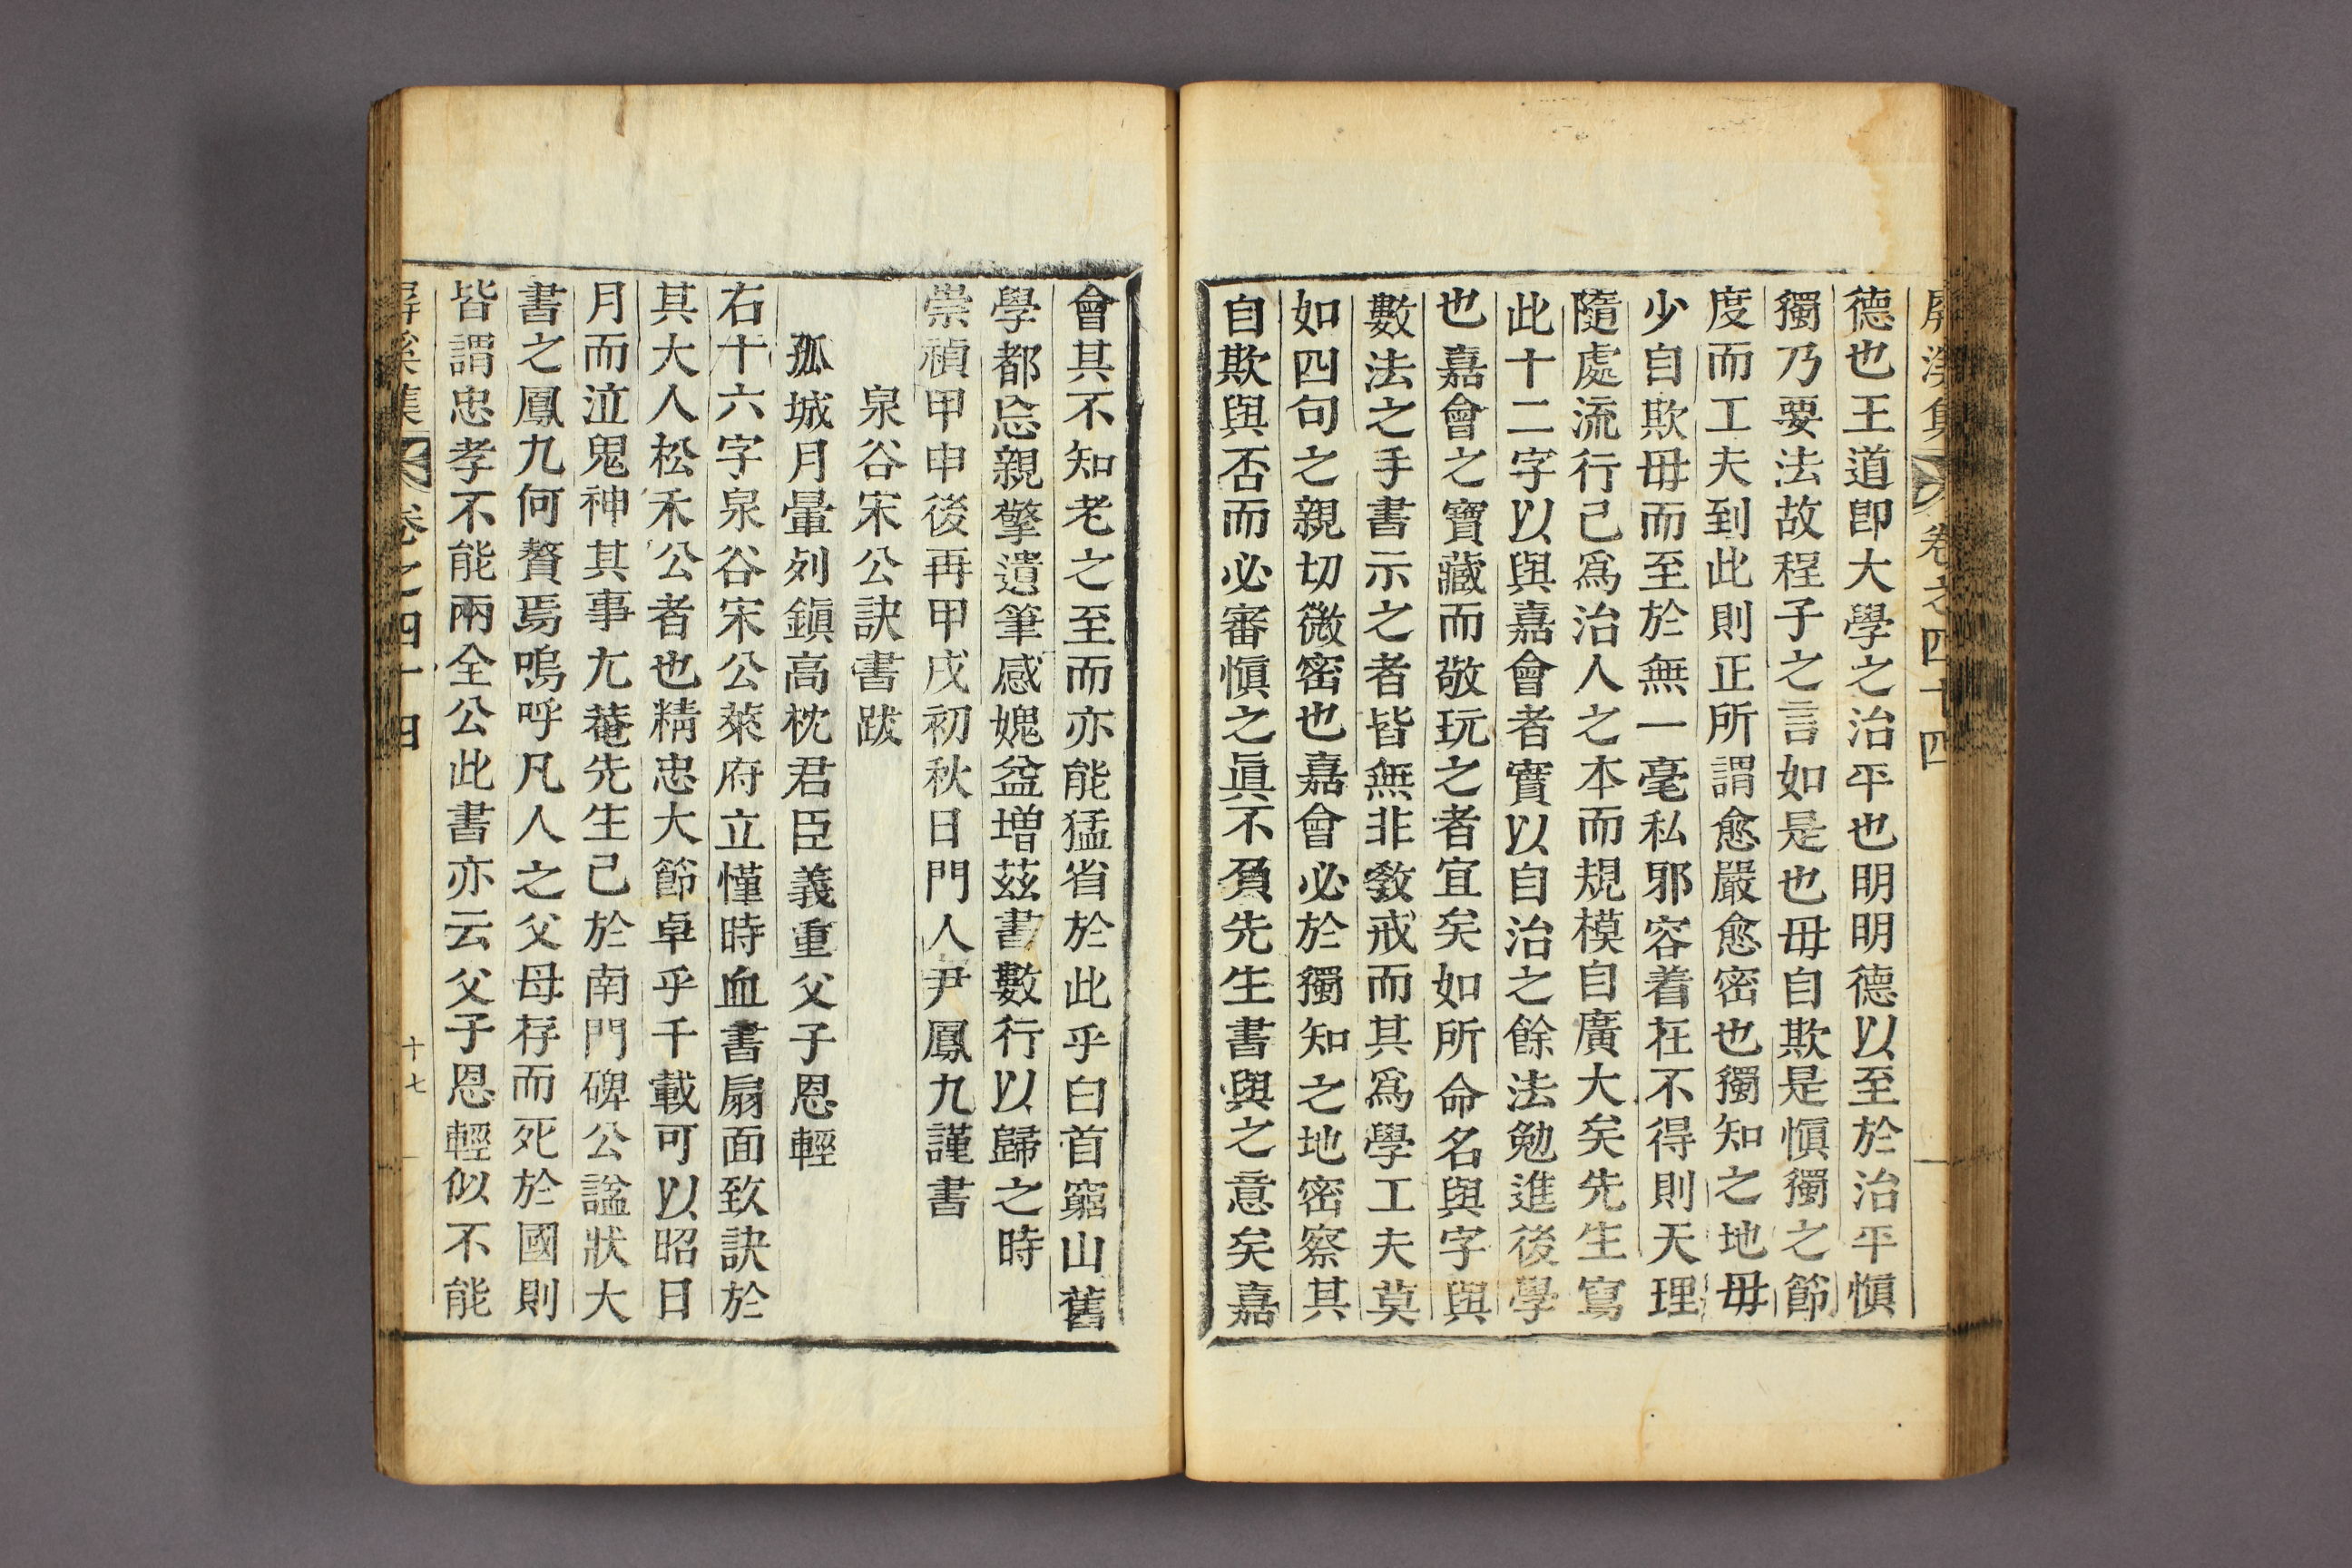 屛溪集 卷之四十四
德也王道卽大學之治平也明明德以至於治平愼
獨乃要法故程子之言如是也毋自欺是愼獨之節
度而工夫到此則正所謂愈嚴愈密也獨知之地毋
少自欺毋而至於無一毫私邪容着在不得則天理
隨處流行己爲治人之本而規模自廣大矣先生寫
此十二字以與嘉會者實以自治之餘法勉進後學
也嘉會之寶藏而敬玩之者宜矣如所命名與字與
數法之手書示之者皆無非敎戒而其爲學工夫莫
如四句之親切微密也嘉會必於獨知之地密察其
自欺與否而必審愼之眞不負先生書與之意矣嘉
會其不知老之至而亦能猛省於此乎白首窮山舊
學都忘親擎遺筆感媿益增玆書數行以歸之時
崇禎甲申後再甲戌初秋日門人尹鳳九謹書
泉谷宋公訣書跋
孤城月暈列鎭高枕君臣義重父子恩輕
右十六字泉谷宋公萊府立慬時血書扇面致訣於
其大人松禾公者也精忠大節卓乎千載可以昭日
月而泣鬼神其事尤菴先生已於南門碑公諡狀大
書之鳳九何贅焉嗚呼凡人之父母存而死於國則
皆謂忠孝不能兩全公此書亦云父子恩輕似不能
屛溪集 卷之四十四 十七